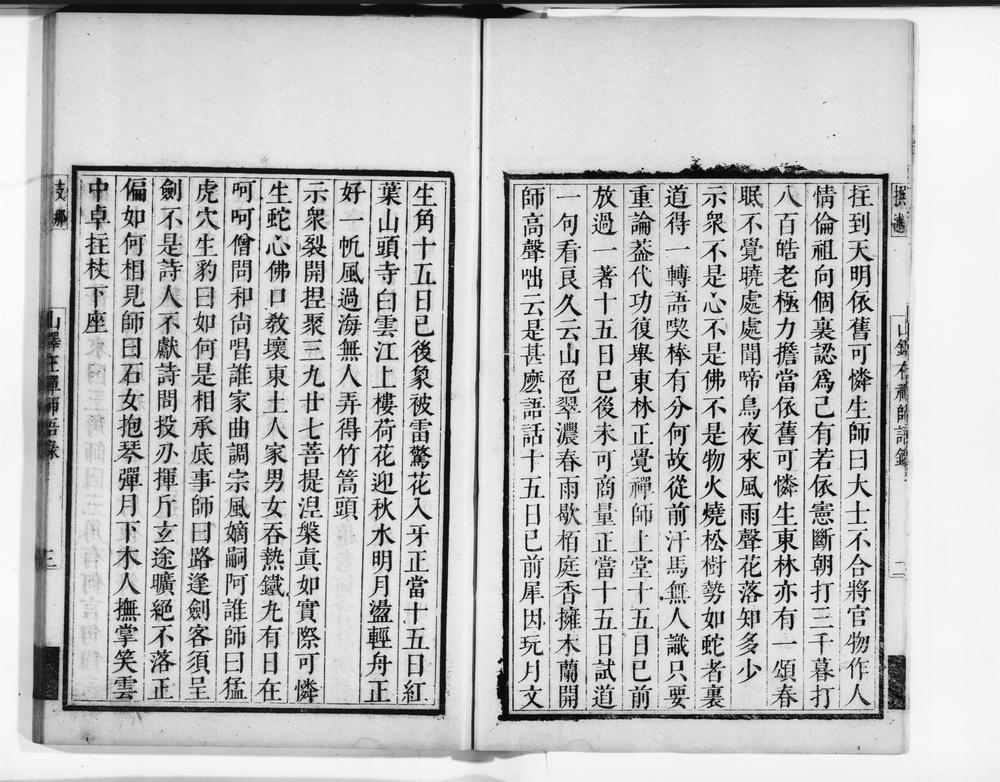 拄到天明依舊可憐生師曰大士不合將官物作人
情倫祖向個裏認爲己有若依憲斷朝打三千暮打
八百皓老極力擔當依舊可憐生東林亦有一頌春
眠不覺曉處處聞啼鳥夜來風雨聲花落知多少
示衆不是心不是佛不是物火燒松樹勢如蛇者裏
道得一轉語喫棒有分何故從前汗馬無人識只要
重論葢代功復舉東林正覺禪師上堂十五日已前
放過一著十五日已後未可商量正當十五日試道
一句看良久云山色翠濃春雨歇栢庭香擁木蘭開
師高聲咄云是甚麽語話十五日已前犀因玩月文
生角十五日已後象被雷驚花入牙正當十五日紅
葉山頭寺白雲江上樓荷花迎秋水明月盪輕舟正
好一帆風過海無人弄得竹篙頭
示衆裂開揑聚三九廿七菩提涅槃真如實際可憐
生蛇心佛口教壞東土人家男女吞熱鐵丸有日在
呵呵僧問和尙唱誰家曲調宗風嫡嗣阿誰師曰猛
虎穴生豹曰如何是相承底事師曰路逢劍客須呈
劍不是詩人不獻詩問投刃揮斤玄途曠絕不落正
偏如何相見師曰石女抱琴彈月下木人撫掌笑雲
中卓拄杖下座
支那
三